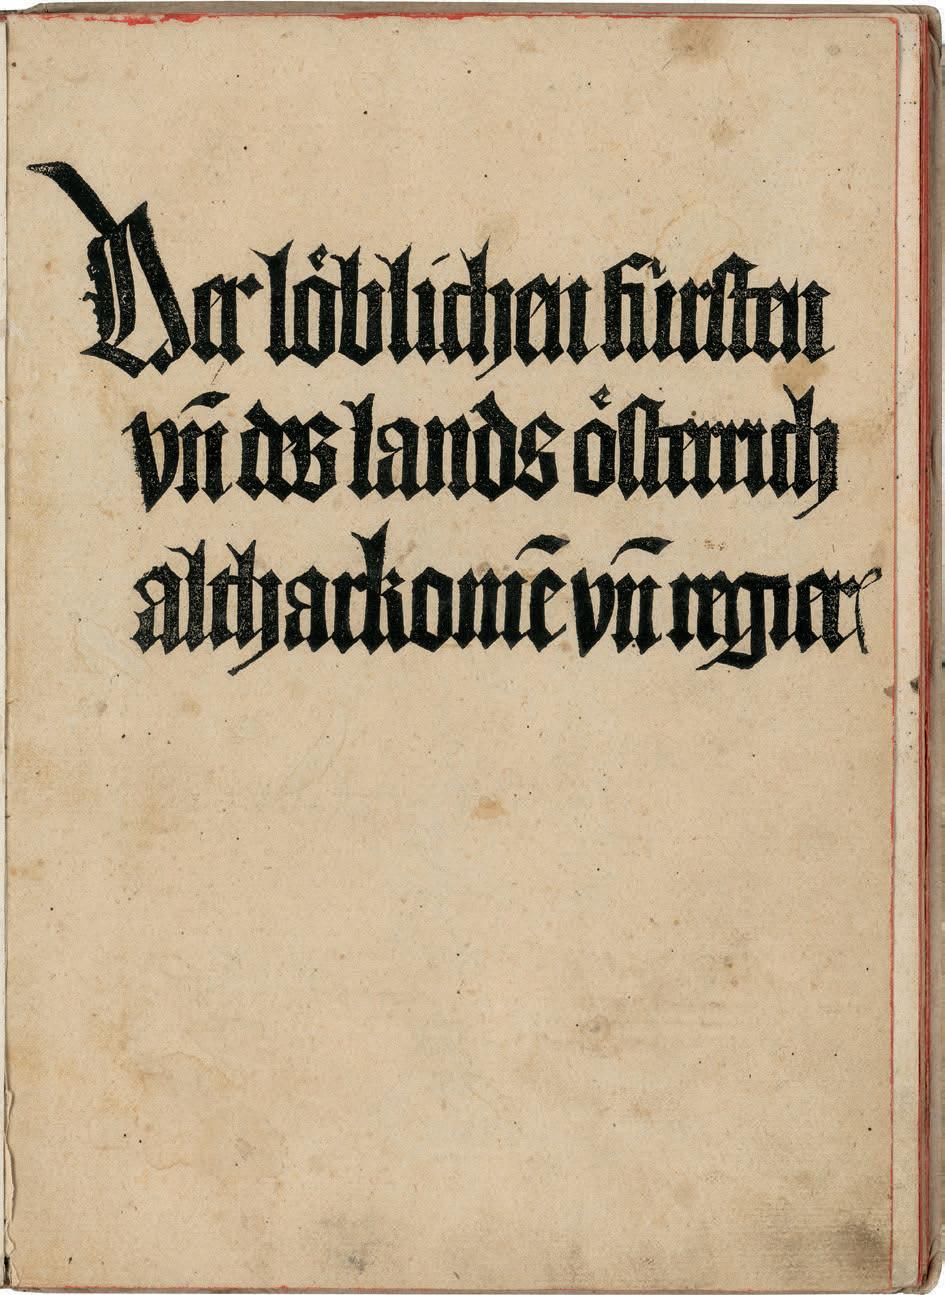 Der loͤblichen fürsten
vn̄ des lands oͤsterrich
altharkomē vn̄ regier